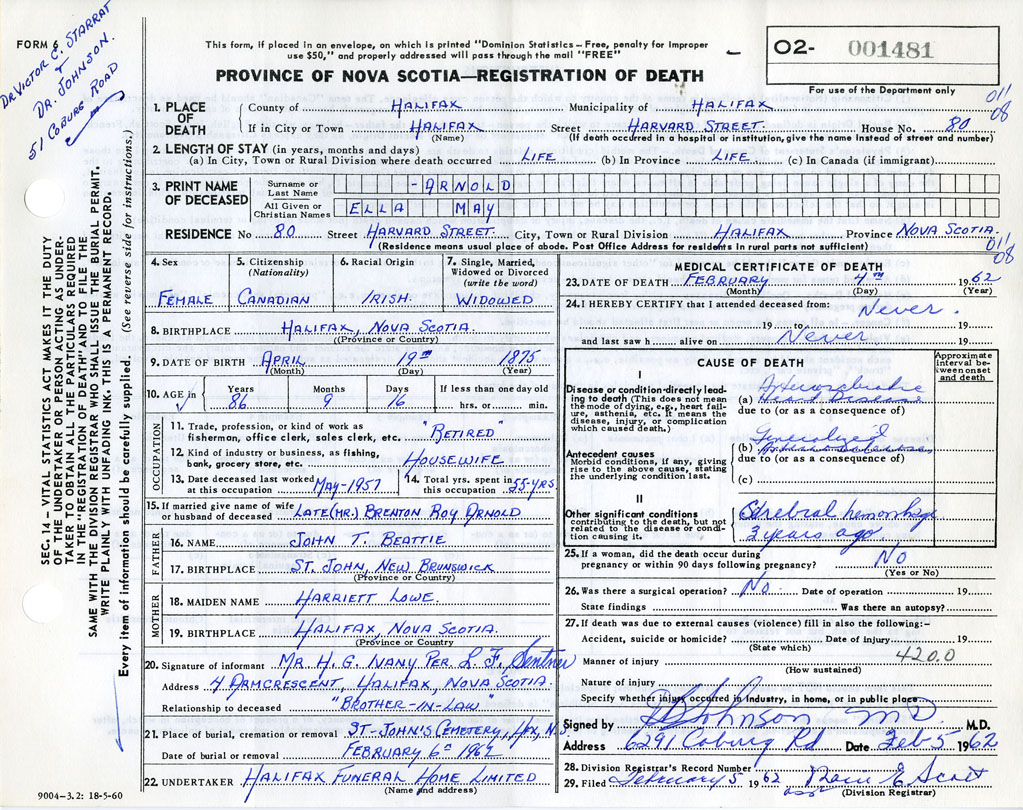 FORM 6
DR VICTOR C. STARRAT
+
DR. JOHNSON.
51 COBURG ROAD
This form, if placed in an envelope, on which is printed "Dominion Statistics – Free, penalty for improper
use $50," and properly addressed will pass through the mail "FREE"
PROVINCE OF NOVA SCOTIA—REGISTRATION OF DEATH
O2- 001481
For use of the Department only
011
08
1. PLACE OF DEATH
County of HALIFAX Municipality of HALIFAX
If in City or Town HALIFAX Street HARVARD STREET. House No. 80
(Name) (If death occurred in a hospital or institution, give the name instead of street and number)
2. LENGTH OF STAY (in years, months and days)
(a) In City, Town or Rural Division where death occurred LIFE (b) In Province LIFE (c) In Canada (if immigrant)
3. PRINT NAME OF DECEASED
Surname or Last Name - ARNOLD
All Given or Christian Names ELLA MAY
RESIDENCE No 80 Street HARVARD STREET. City, Town or Rural Division HALIFAX Province NOVA SCOTIA.
(Residence means usual place of abode. Post Office Address for residents in rural parts not sufficient)
011
08
4. Sex FEMALE
5. Citizenship (Nationality) CANADIAN
6. Racial Origin IRISH.
7. Single, Married, Widowed or Divorced (write the word) WIDOWED
8. BIRTHPLACE HALIFAX, NOVA SCOTIA.
(Province or Country)
9. DATE OF BIRTH APRIL 19TH 1875
(Month) (Day) (Year)
10. AGE in Years 86 Months 9 Days 16 If less than one day old hrs. or min.
OCCUPATION
11. Trade, profession, or kind of work as fisherman, office clerk, sales clerk, etc. "RETIRED"
12. Kind of industry or business, as fishing, bank, grocery store, etc. HOUSEWIFE
13. Date deceased last worked at this occupation MAY-1957
14. Total yrs. spent in this occupation 55-YRS.
15. If married give name of wife or husband of deceased LATE (MR.) BRENTON ROY ARNOLD
FATHER
16. NAME JOHN T. BEATTIE
17. BIRTHPLACE ST. JOHN, NEW BRUNSWICK
(Province or Country)
MOTHER
18. MAIDEN NAME HARRIETT LOWE.
19. BIRTHPLACE HALIFAX, NOVA SCOTIA.
(Province or Country
20. Signature of informant MR. H. G. IVANY PER. L. F. Sentner
Address 4 ARMCRESCENT, HALIFAX, NOVA SCOTIA.
Relationship to deceased "BROTHER-IN-LAW"
21. Place of burial, cremation or removal ST-JOHN'S CEMETERY, HFX, N.S.
Date of burial or removal FEBRUARY 6TH 1962
22. UNDERTAKER HALIFAX FUNERAL HOME LIMITED
(Name and address)
MEDICAL CERTIFICATE OF DEATH
23. DATE OF DEATH FEBRUARY 4TH 1962
(Month) (Day) (Year)
24. I HEREBY CERTIFY that I attended deceased from: Never.
19 19
and last saw h alive on Never 19
CAUSE OF DEATH
Approximate interval between onset and death
I
Disease or condition-directly leading to death (This does not mean the mode of dying, e.g., heart failure, asthenia, etc. It means the disease, injury, or complication which caused death.)
(a) Arteriosclerotic Heart Disease
due to (or as a consequence of)
Antecedent causes
Morbid conditions, if any, giving rise to the above cause, stating the underlying condition last.
(b) Generalized
due to (or as a consequence of)
(c)
II
Other significant conditions contributing to the death, but not related to the disease or condition causing it.
Cerebral hemorrhage
3 years ago.
25. If a woman, did the death occur during pregnancy or within 90 days following pregnancy? No
(Yes or No)
26. Was there a surgical operation? No. Date of operation 19
State findings Was there an autopsy?
27. If death was due to external causes (violence) fill in also the following:-
Accident, suicide or homicide? Date of injury 19
(State which)
420.0
Manner of injury
(How sustained)
Nature of injury
Specify whether injury occurred in industry, in home, or in public place
Signed by Johnson MD. M.D.
Address 6291 Coburg Rd Date Feb 5 1962
28. Division Registrar's Record Number
29. Filed February 5 1962 Scott
(Division Registrar)
SEC. 14 – VITAL STATISTICS ACT MAKES IT THE DUTY
OF THE UNDERTAKER OR PERSON ACTING AS UNDER-
TAKER TO OBTAIN ALL THE PARTICULARS REQUIRED
IN THE "REGISTRATION OF DEATH" AND TO FILE THE
SAME WITH THE DIVISION REGISTRAR WHO SHALL ISSUE THE BURIAL PERMIT.
WRITE PLAINLY WITH UNFADING INK. THIS IS A PERMANENT RECORD.
Every item of information should be carefully supplied. (See reverse side for instructions.)
9004-3.2: 18-5-60